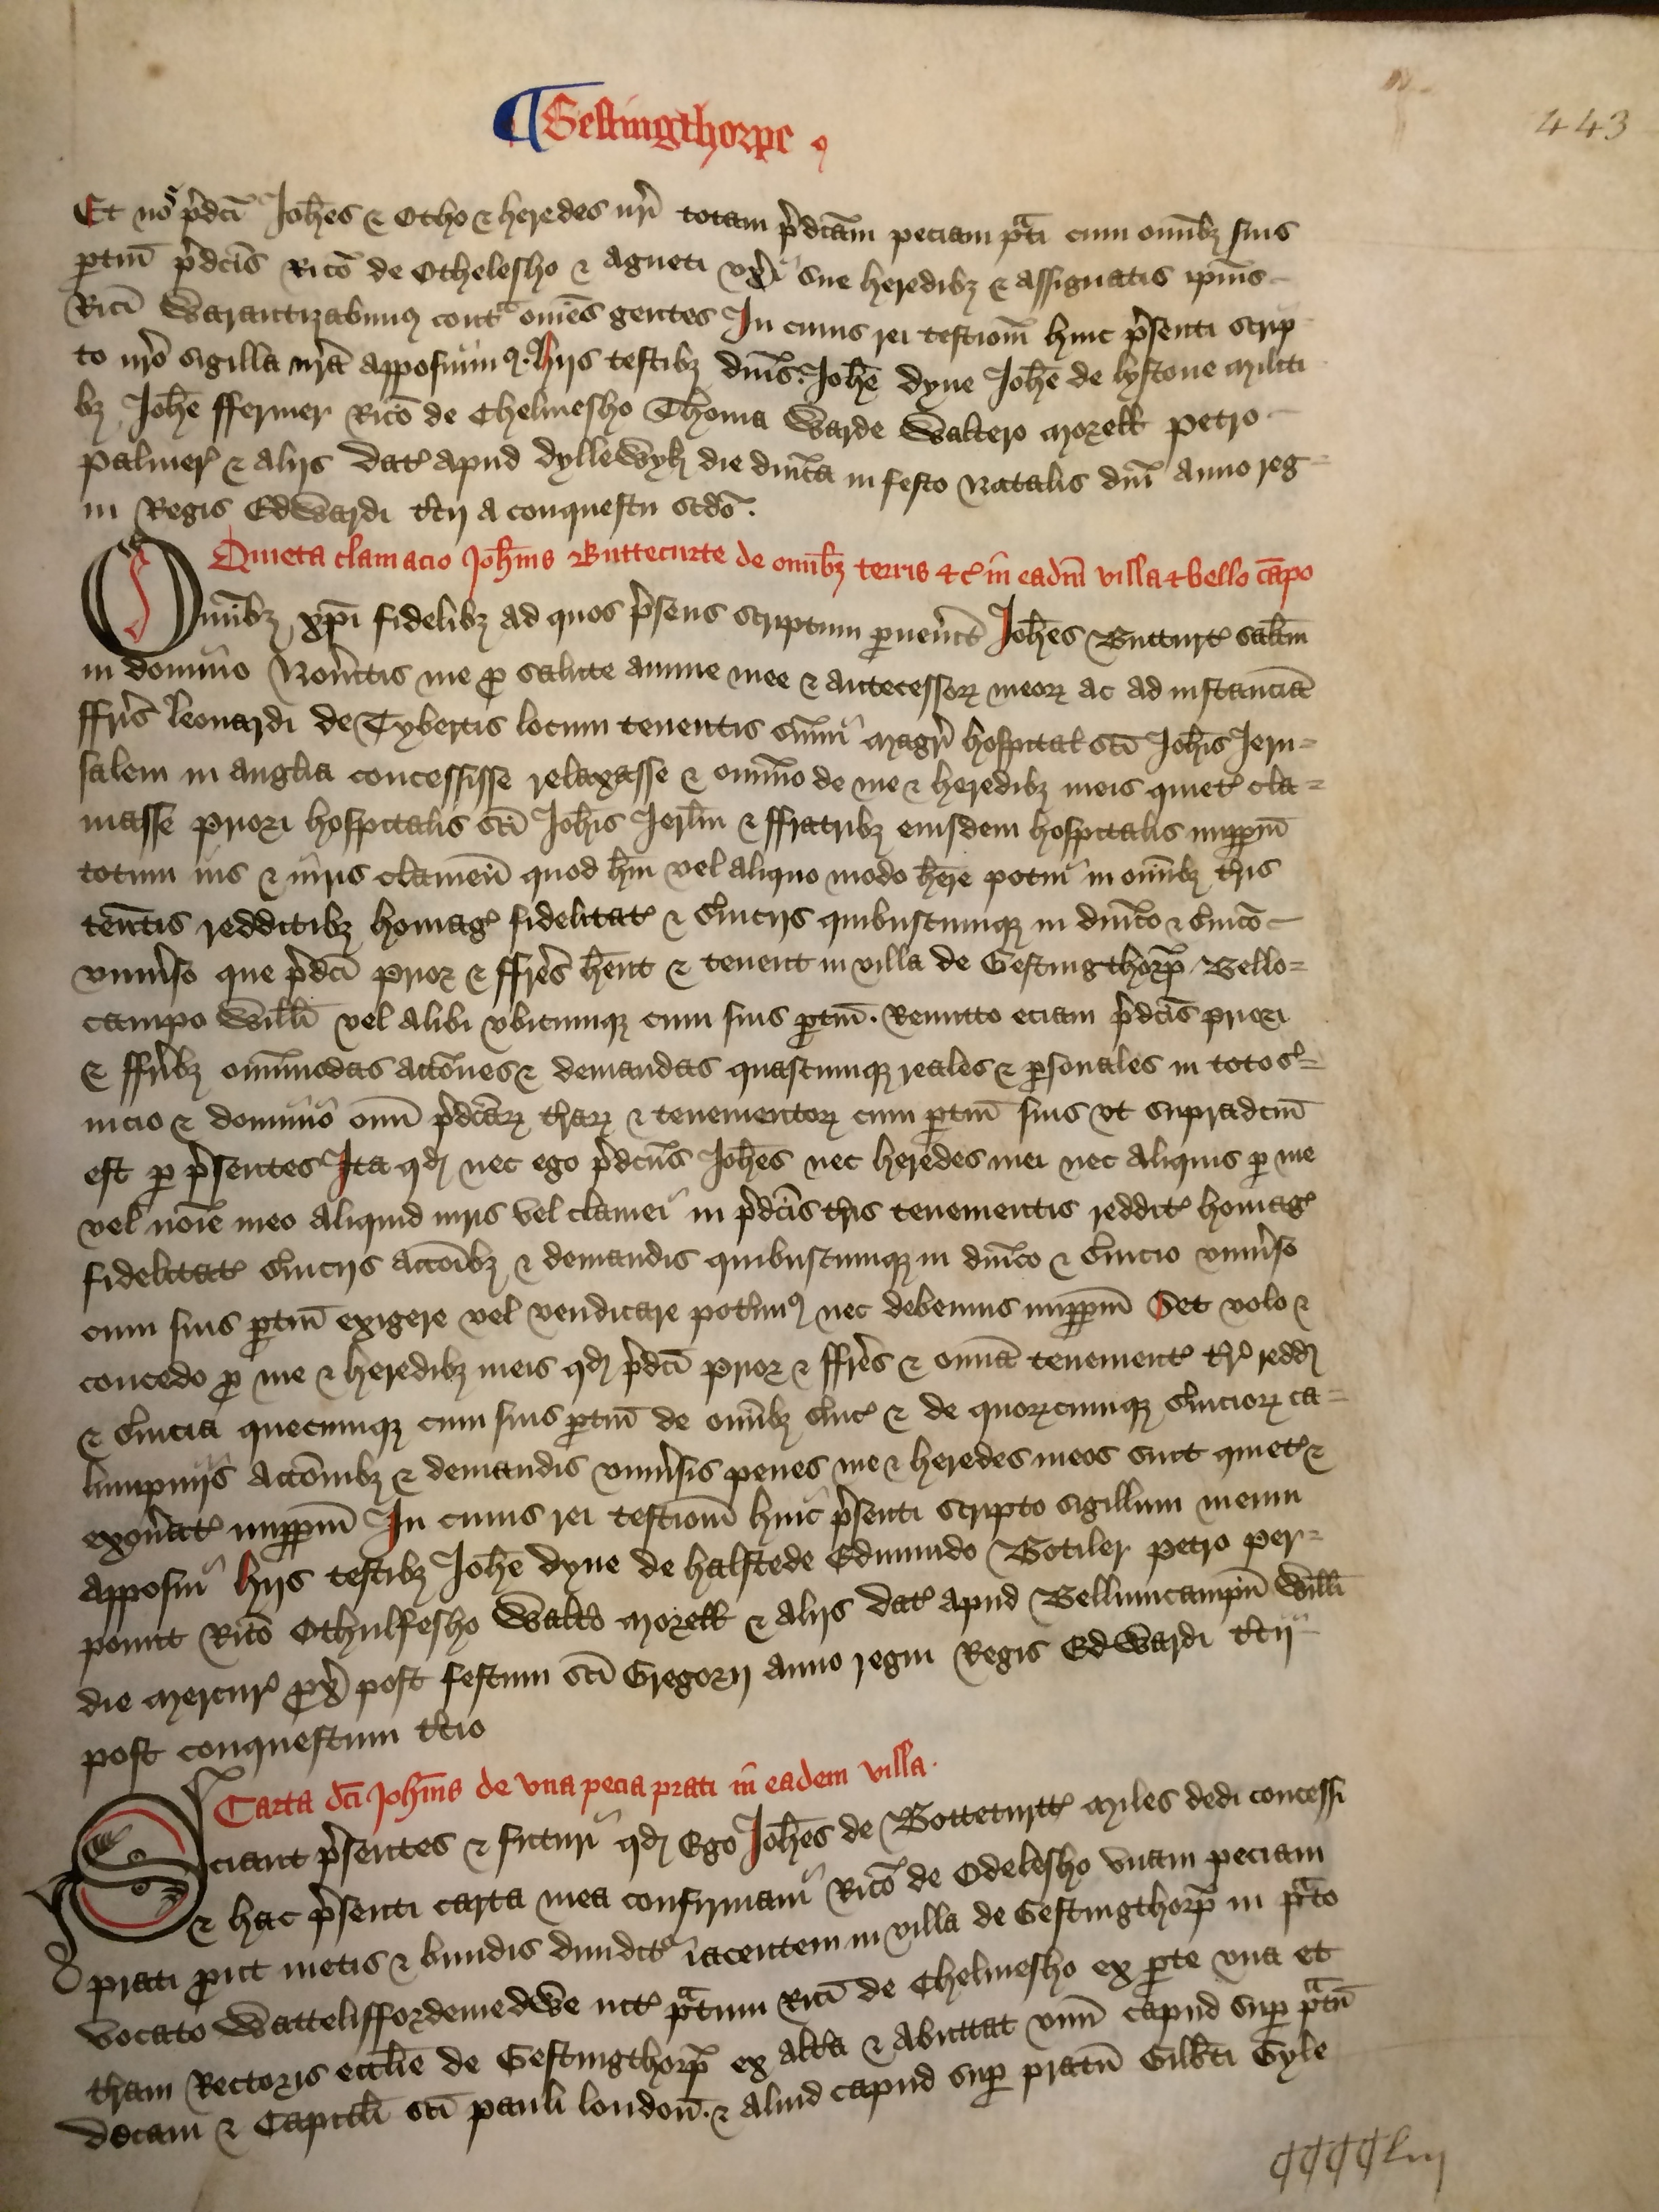 ¶ Gestingthorpe
443
Et nos p̄dc̄i Joh̄es & Otho & heredes nr̄i totam p̄dc̄am peciam pͣti cum omībꝫ suis
ꝑtin̄ p̄dc̄is Ric̄o de Othelesho & Agneti vx̄i sue heredibꝫ & assignatis ip̄ius
Ric̄i Warantizabimꝰ contͣ om̄es gentes In cuius rei testiom̄ huic p̄senti scrip
to nr̄o sigilla nr̄a apposuimꝰ. hijs testibꝫ dn̄is. Joh̄e Dyne Joh̄e de lystone militi
bꝫ Joh̄e ffermer Ric̄o de Chelmesho Thoma Warde Waltero Morell Petro
Palmer̄ & alijs Dat̄ apud Dyllewyk die dn̄ica in festo Natalis dn̄i Anno reg
ni Regis Edwardi t̄cij a conquestu scd̄o.
Quieta clamacio Joh̄nis Buttecurte de omībꝫ terris &c̄ in ead̄m villa & bello cāpo
Omībꝫ xp̄i fidelibꝫ ad quos p̄sens scriptum ꝑuen̄it Joh̄es Butturt̄ salt̄m
in domino Nou̅itis me ꝓ salute anime mee & antecessoꝝ meoꝝ ac ad instanciā
ffr̄is leonardi de Tybertis locum tenentis sum̄i magr̄i hospital̄ sc̄i Joh̄is Jeru=
salem in anglia concessisse relaxasse & omīno de me & heredibꝫ meis quiet̄ cla=
masse priori hospitalis sc̄i Joh̄is Jerl̄m & ffratribꝫ eiusdem hospitalis imꝑꝑm̄
totum ius & iuris clameū quod h̄ui vel aliquo modo h̄ere potui in omībꝫ t̄ris
ten̄tis redditibꝫ homaḡ fidelitat̄ & s̄uicijs quibuscumqꝫ in dn̄ico & s̄uico
vniūso que p̄dc̄i prior & ffr̄es h̄ent & tenent in villa de Gestingthorp̄ Bello=
campo Will̄i vel alibi vbicumqꝫ cum suis ꝑtin̄. Remitto eciam p̄dc̄is priori
& ffr̄ibꝫ om̄imodas acc̄ones & demandas quascumqꝫ reales & ꝑsonales in toto s̄=
uicio & dominio om̄i p̄dc̄aꝝ t̄raꝝ & tenementoꝝ cum ꝑtin̄ suis vt supradc̄m
est ꝑ p̄sentes Ita qd̄ nec ego p̄dc̄us Joh̄es nec heredes mei nec aliquis ꝑ me
vel noīe meo aliquid iuris vel clamei in p̄dc̄is t̄ris tenementis reddit̄ homaḡ
fidelitat̄ s̄uicijs acc̄oībꝫ & demandis quibuscumqꝫ in dn̄ico & s̄uicio vniūso
cum suis ꝑtin̄ exigere vel vendicare pot̄imꝰ nec debemus imꝑꝑm̄ Set volo &
concedo ꝓ me & heredibꝫ meis qd̄ p̄dc̄i prior & ffr̄es & omīa tenement̄ t̄r̄ redd̄
& s̄uicia quecumqꝫ cum suis ꝑtin̄ de omībꝫ s̄uic̄ & de quoꝝcumqꝫ s̄uicioꝝ ca=
lumpnijs acc̄onibꝫ & demandis vniūsis penes me & heredes meos sint quiet̄ &
exon̄at̄ imꝑꝑm̄ In cuius rei testiom̄ huic p̄senti scripto sigillum meum
apposui hijs testibꝫ Joh̄e Dyne de halstede Edmundo Botiler petro per=
pount Ric̄o Othulfesho Walt̄o Morell & alijs Dat̄ apud Bellumcampū Will̄i
die mercur̄ ꝓx̄ post festum sc̄i Gregorij anno regni Regis Edwardi t̄cij
post conquestum t̄cio
Carta dc̄i Joh̄nis de vna pecia prati in eadem villa.
Sciant p̄sentes & futuri qd̄ Ego Joh̄es de Botteturtt̄ Miles dedi concessi
& hac p̄senti carta mea confirmaui Ric̄o de Odelesho vnam peciam
prati ꝓut metis & bundis diuidit̄ iacentem in villa de Gestingthorp̄ in pͣto
vocato Watteliffordemedwe int̄ pͣtum Ric̄i de Chelmesho ex ꝑte vna et
t̄ram Rectoris eccl̄ie de Gestingthorp̄ ex alt̄a & abuttat vnū capud suꝑ pͣtū
decani & Capitl̄i sc̄i pauli london̄. & aliud capud suꝑ pratū Gilb̄ti Gyle